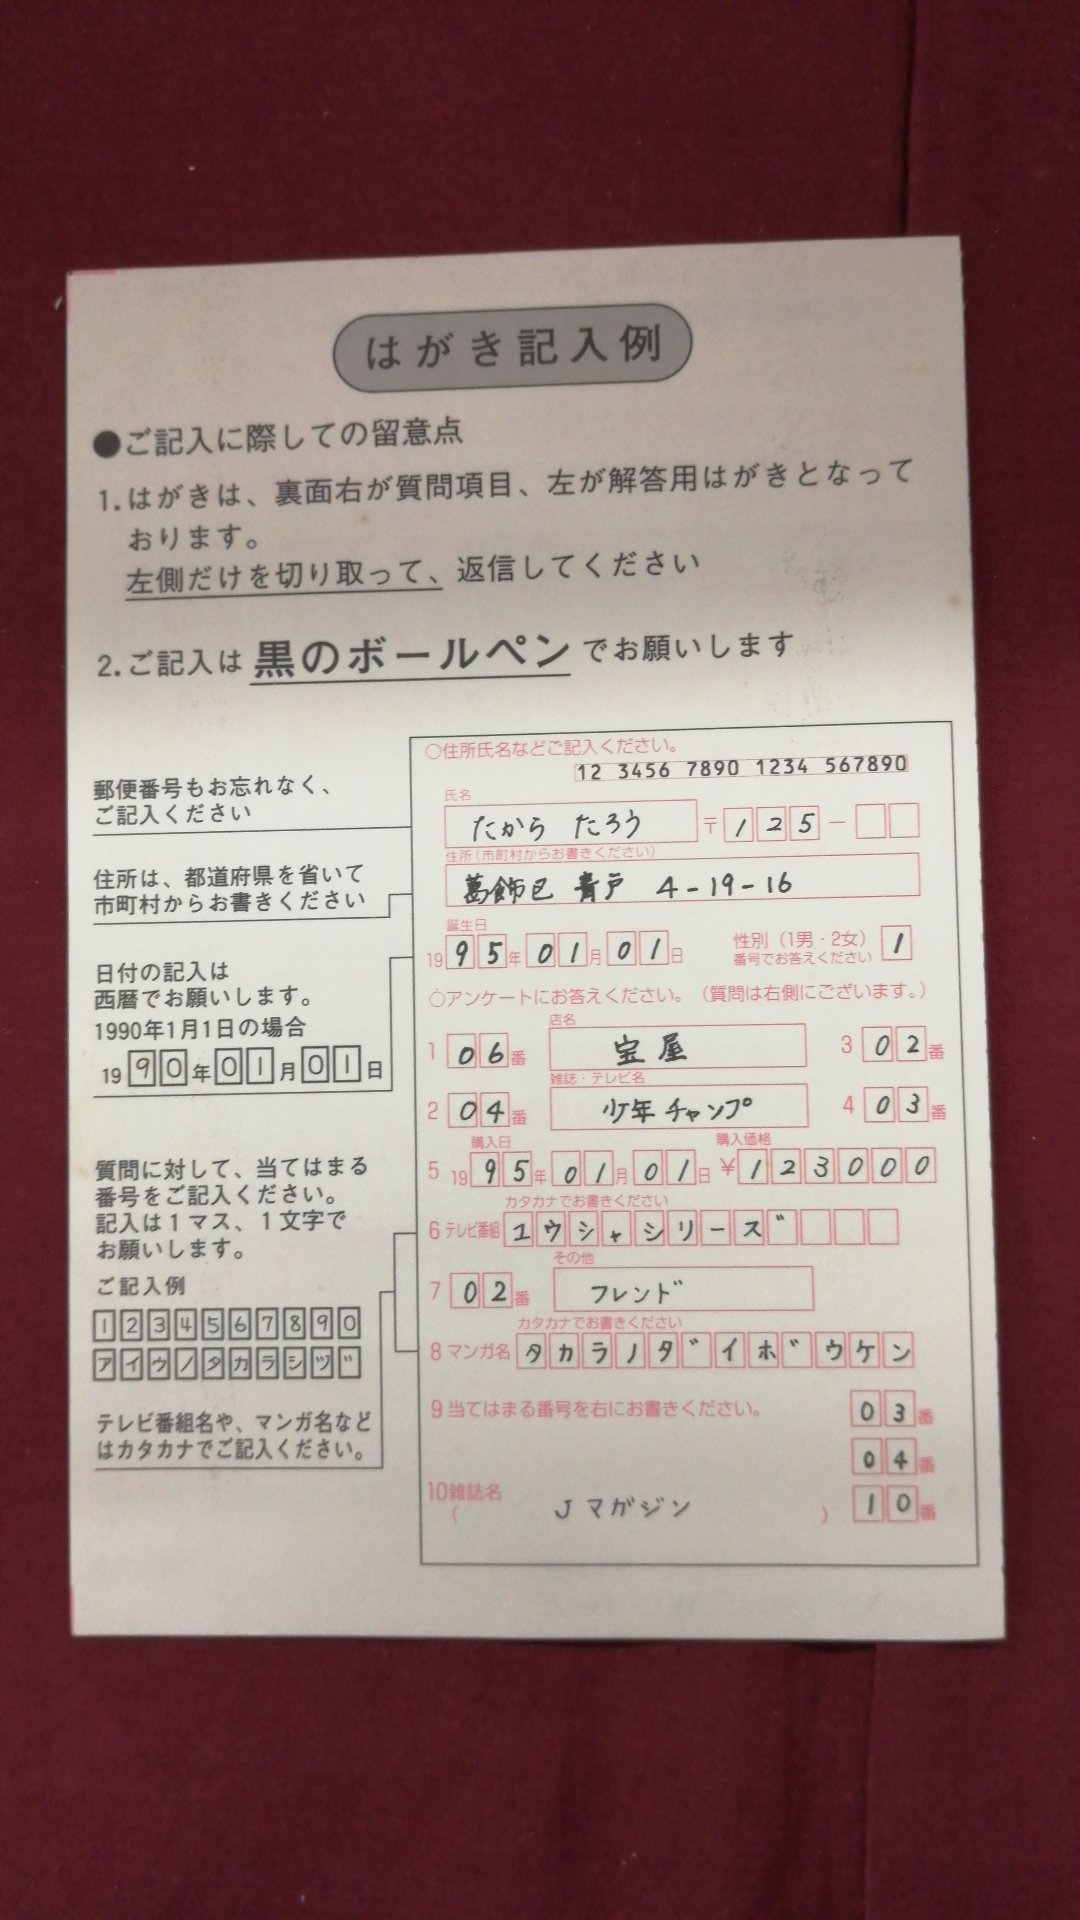 はがき記入例
●ご記入に際しての留意点
1.はがきは、裏面右が質問項目、左が解答用はがきとなって
おります。
左側だけを切り取って、返信してください
2.ご記入は黒のボールペンでお願いします
郵便番号もお忘れなく、
ご記入ください
住所は、都道府県を省いて
市町村からお書きください
日付の記入は
西暦でお願いします。
1990年1月1日の場合
19 90年01月01日
質問に対して、当てはまる
番号をご記入ください。
記入は1マス、1文字で
お願いします。
ご記入例
1234567890
アイウノタカラシヅ゛
テレビ番組名や、マンガ名など
はカタカナでご記入ください。
○住所氏名などご記入ください。
12 3456 7890 1234 567890
氏名
たから たろう 〒125-
住所(市町村からお書きください)
葛飾区 青戸 4-19-16
誕生日
1995年01月01日 性別(1男・2女) 1
番号でお答えください
○アンケートにお答えください。(質問は右側にございます。)
店名
1 06番 宝屋 3 02番
雑誌・テレビ名
2 04番 少年チャンプ 4 03番
購入日 購入価格
5 1995年01月01日 ¥123000
カタカナでお書きください
6 テレビ番組 ユウシャシリーズ゛
その他
7 02番 フレンド
カタカナでお書きください
8 マンガ名 タカラノタ゛イホ゛ウケン
9 当てはまる番号を右にお書きください。 03番
04番
10 雑誌名 10番
( Jマガジン )